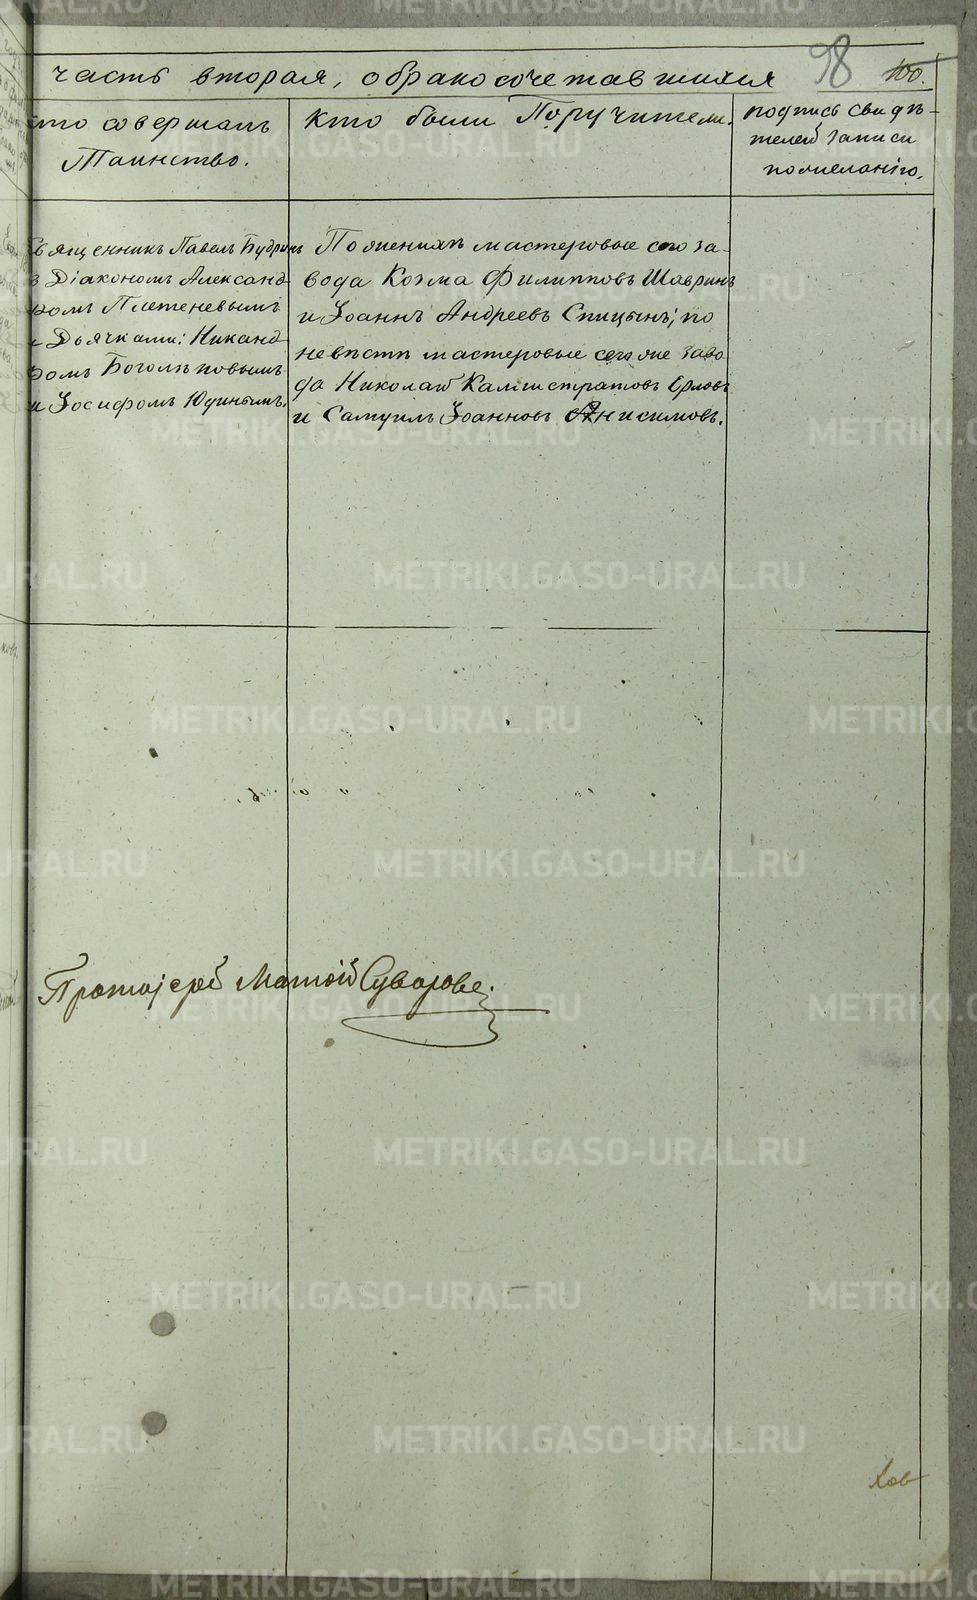 часть вторая, о бракосочетавшихся
98
100.
кто совершалъ
Таинство.
Кто были Поручители.
подпись свидѣ-
телей записи
по желанію.
Священникъ Павелъ Будринъ
Діакономъ Александ-
ромъ Плетеневымъ
и Дьячками:Никанд-
ромъ Боголѣповымъ
и Іосифомъ Юдинымъ.
По женихѣ мастеровые сего за-
вода Козма Филипповъ Шавринъ
и Іоаннъ Андреевъ Спицынъ; по
невѣстѣ мастеровые сего же заво-
да Николай Каллистратовъ Орловъ
и Самуилъ Іоанновъ Анисимовъ.
Протоіерей Матѳій Суворовъ.
METRIKI.GASO-URAL.RU